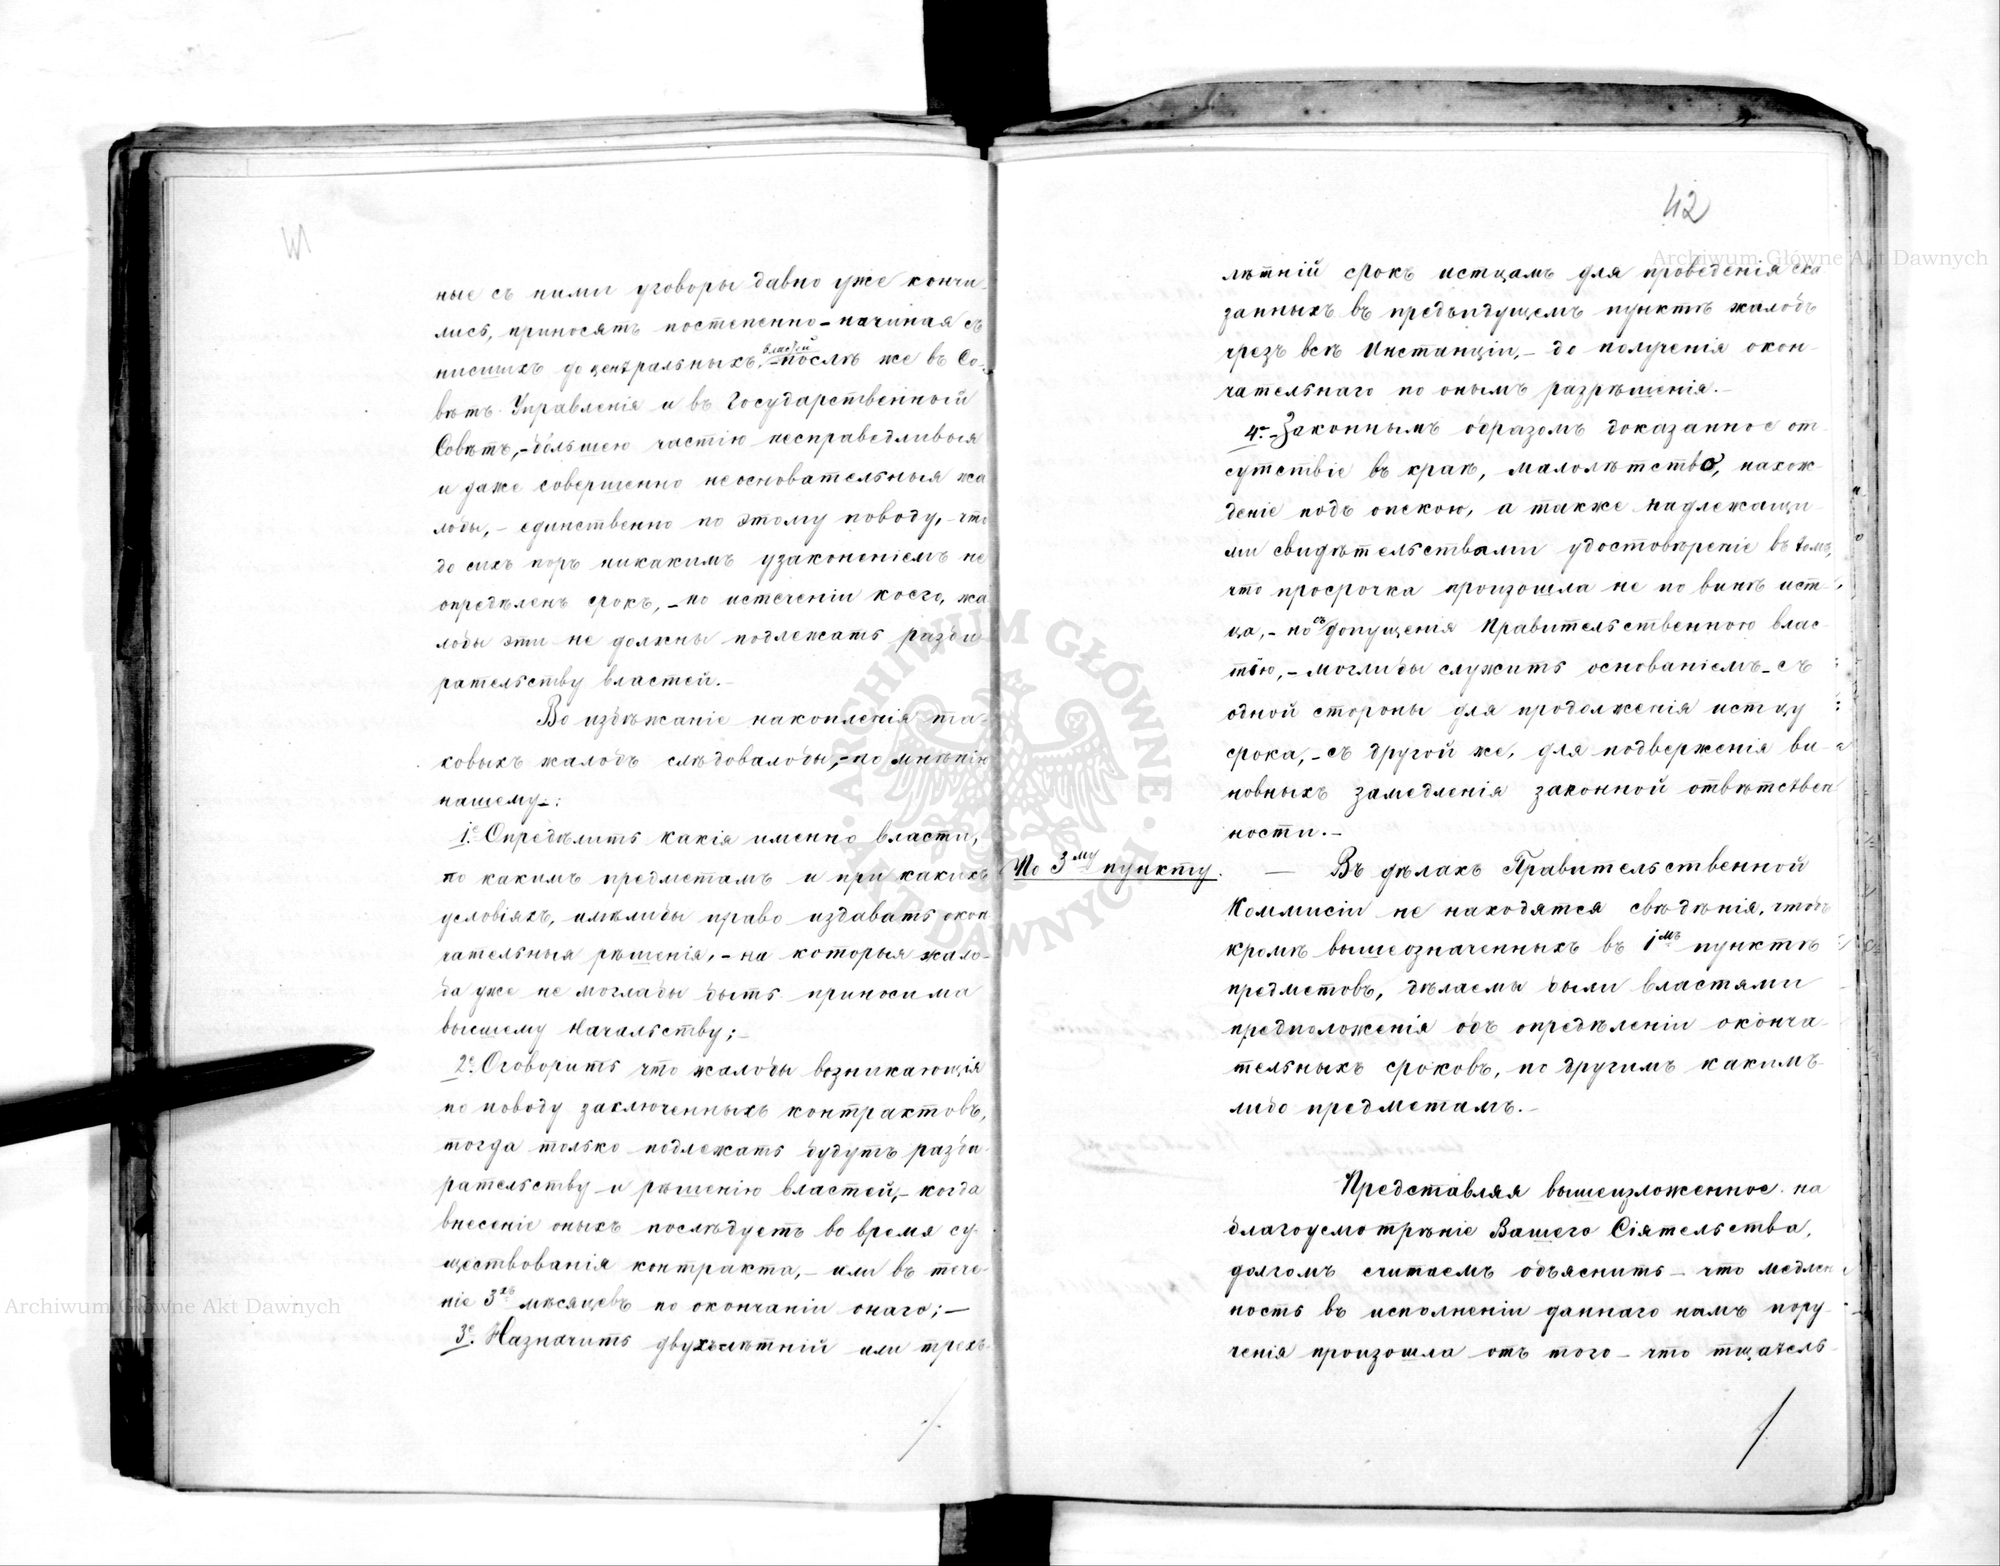 ные съ ними уговоры давно уже кончи-
лись, приносятъ постепенно – начиная съ
нисшихъ до центральныхъ властей, – послѣ же въ Со-
вѣтъ Управленія и въ Государственной
Совѣтъ, – большею частію несправедливыя
и даже совершенно неосновательныя жа
лобы, – единственно по этому поводу, – что
до сихъ поръ никакимъ узаконеніемъ не
опредѣленъ срокъ, – по истеченіи коего, жа
лобы эти не должны подлежать разби-
рательству властей. –
Во избѣжаніе накопленія та-
ковыхъ жалобъ слѣдовалобы, – по мнѣнію
нашему –:
1е. Опредѣлить какія именно власти,
по какимъ предметамъ и при какихъ
условіяхъ, имѣлибы право издавать окон
чательныя рѣшенія, – на которыя жало-
ба уже не моглабы быть приносима
высшему Начальству; –
2е. Оговорить что жалобы возникающія
по поводу заключенныхъ контрактовъ,
тогда только подлежать будутъ разби-
рательству и рѣшенію властей, – когда
внесеніе оныхъ послѣдуетъ во время су-
ществованія контракта, – или въ тече-
ніе 3хъ мѣсяцевъ по окончаніи онаго; –
3е. Назначить двухълѣтній или трехъ-
42
лѣтній срокъ истцамъ для проведенія ска
занныхъ въ предъидущемъ пунктѣ жалобъ
чрезъ всѣ Инстанціи, – до полученія окон-
чательнаго по онымъ разрѣшенія. –
4е – Законнымъ образомъ доказанное от-
сутствіе въ краѣ, малолѣтство, нахож-
деніе подъ опекою, а также надлежащи-
ми свидѣтельствами удостовѣреніе въ томъ,
что просрочка произошла не по винѣ ист-
ца, – но съ допущенія Правительственною влас-
тію, – моглибы служить основаніемъ – съ
одной стороны для продолженія истцу
срока, – съ другой же, для подверженія ви-
новныхъ замедленія законной отвѣтствен
ности. –
По 3му пункту. — Въ дѣлахъ Правительственной
Коммисіи не находятся свѣдѣнія, чтобъ
кромѣ вышеозначенныхъ въ 1мъ пунктѣ
предметовъ, дѣлаемы были властями
предположенія объ опредѣленіи оконча-
тельныхъ сроковъ, по другимъ какимъ-
либо предметамъ. –
Представляя вышеизложенное на
благоусмотрѣніе Вашего Сіятельства,
долгомъ считаемъ объяснить – что медлен
ность въ исполненіи даннаго намъ пору-
ченія произошла отъ того – что тщатель-
Archiwum Główne Akt Dawnych